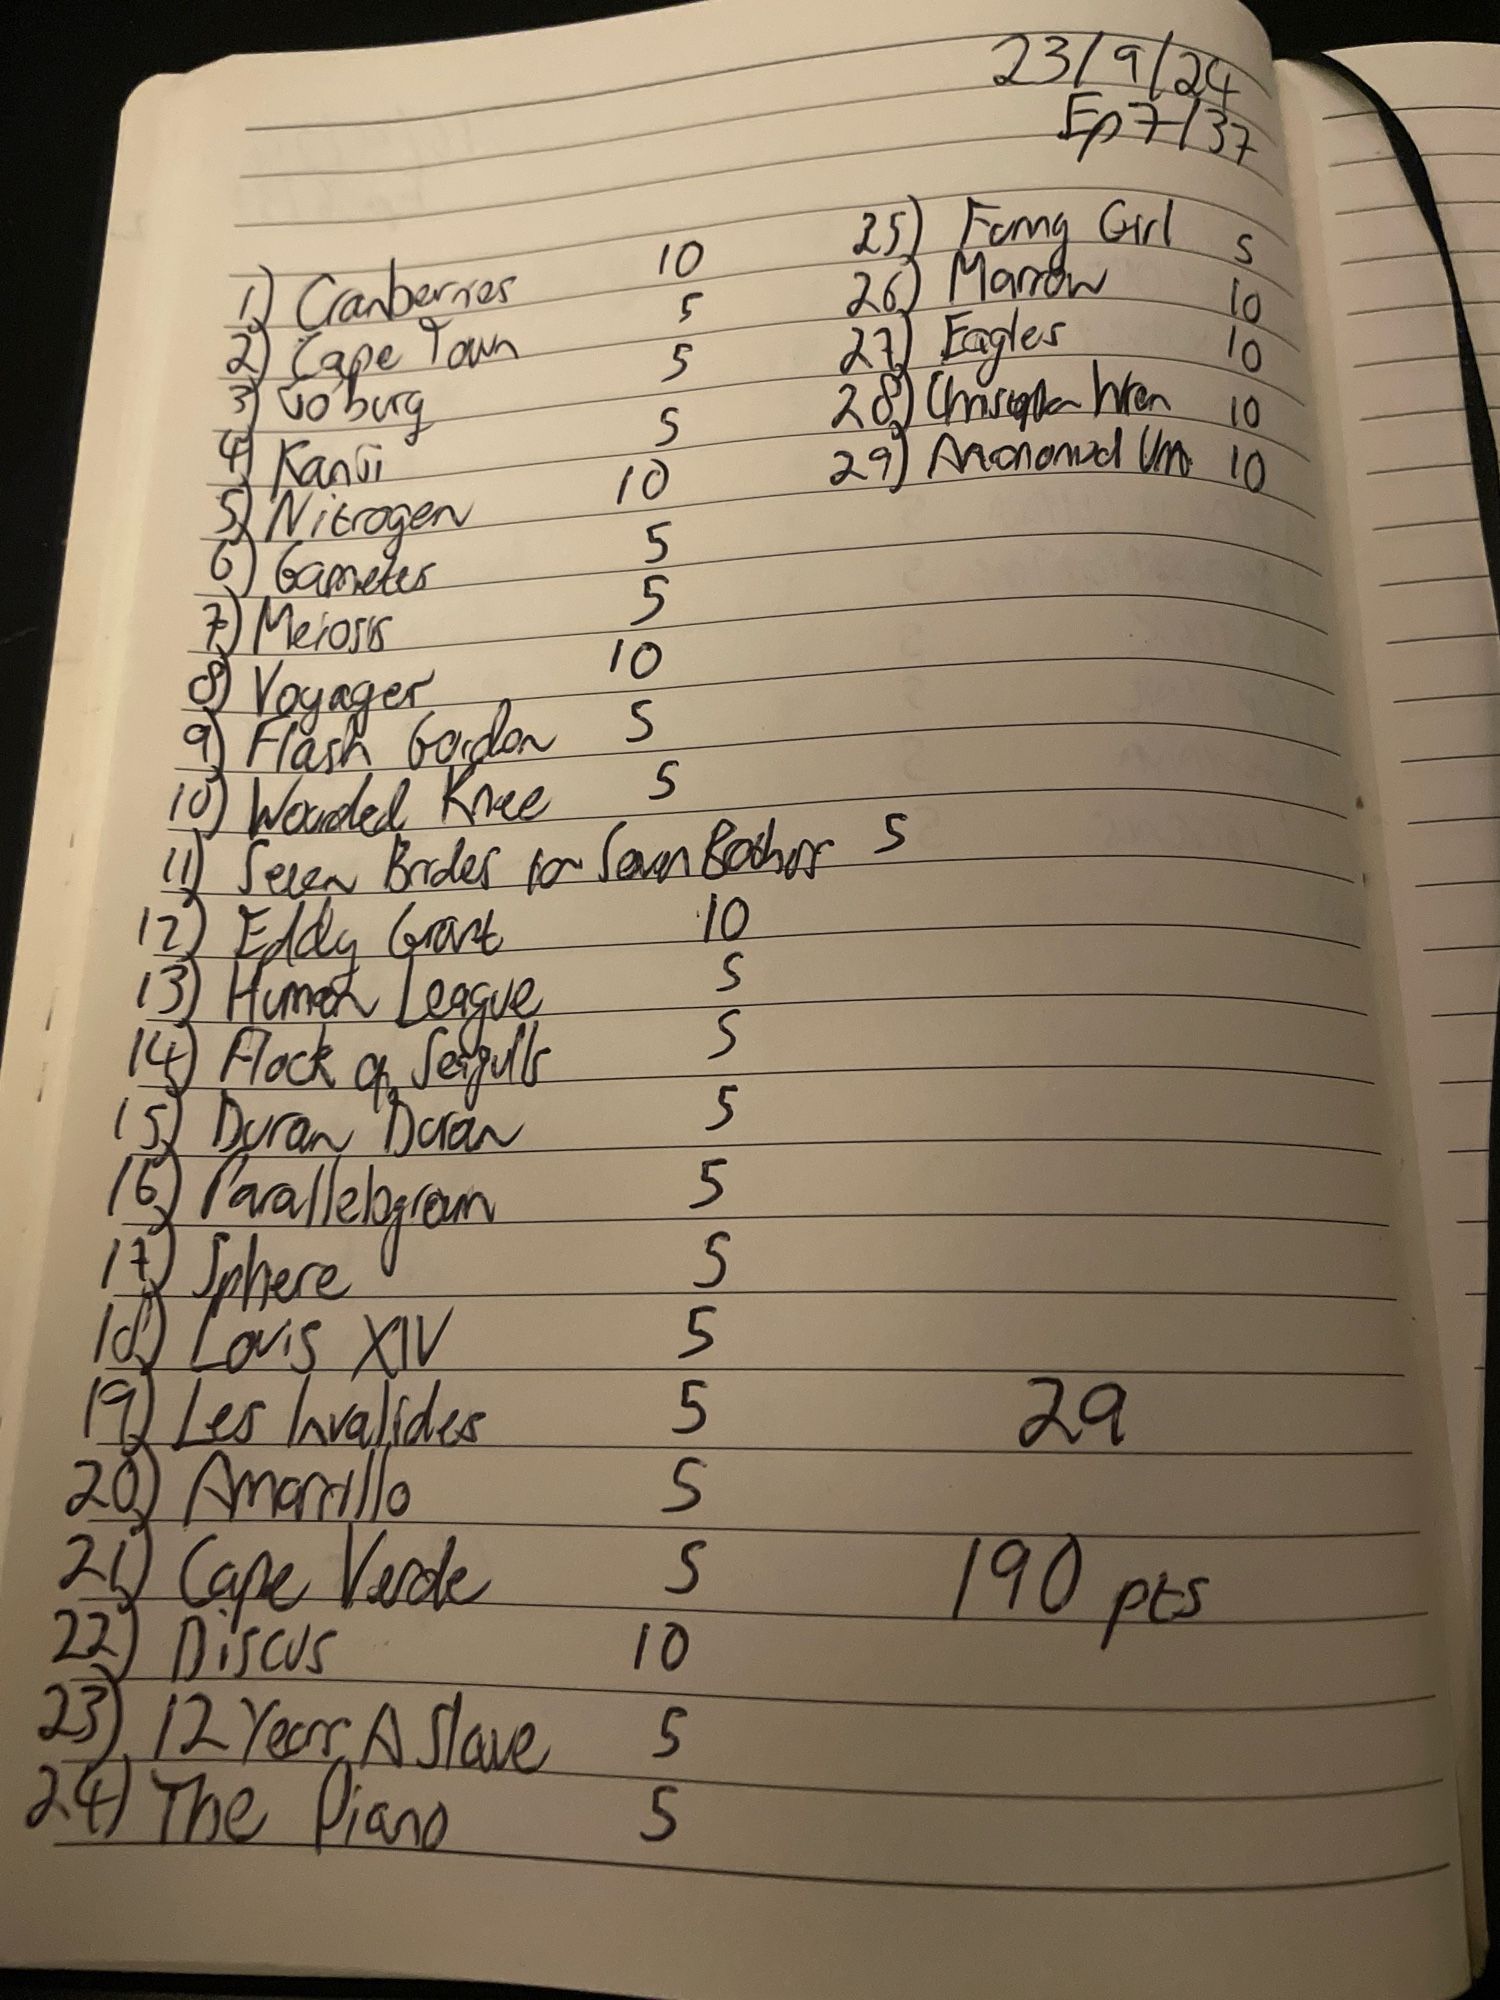 23/9/24
Ep 7/37
1) Cranberries 10
2) Cape Town 5
3) Jo'burg 5
4) Kanji 5
5) Nitrogen 10
6) Gametes 5
7) Meiosis 5
8) Voyager 10
9) Flash Gordon 5
10) Wounded Knee 5
11) Seven Brides for Seven Brothers 5
12) Eddy Grant 10
13) Human League 5
14) Flock of Seagulls 5
15) Duran Duran 5
16) Parallelogram 5
17) Sphere 5
18) Louis XIV 5
19) Les Invalides 5
20) Amarillo 5
21) Cape Verde 5
22) Discus 10
23) 12 Years A Slave 5
24) The Piano 5
25) Funny Girl 5
26) Marrow 10
27) Eagles 10
28) Christopher Wren 10
29) 10
29
190 pts